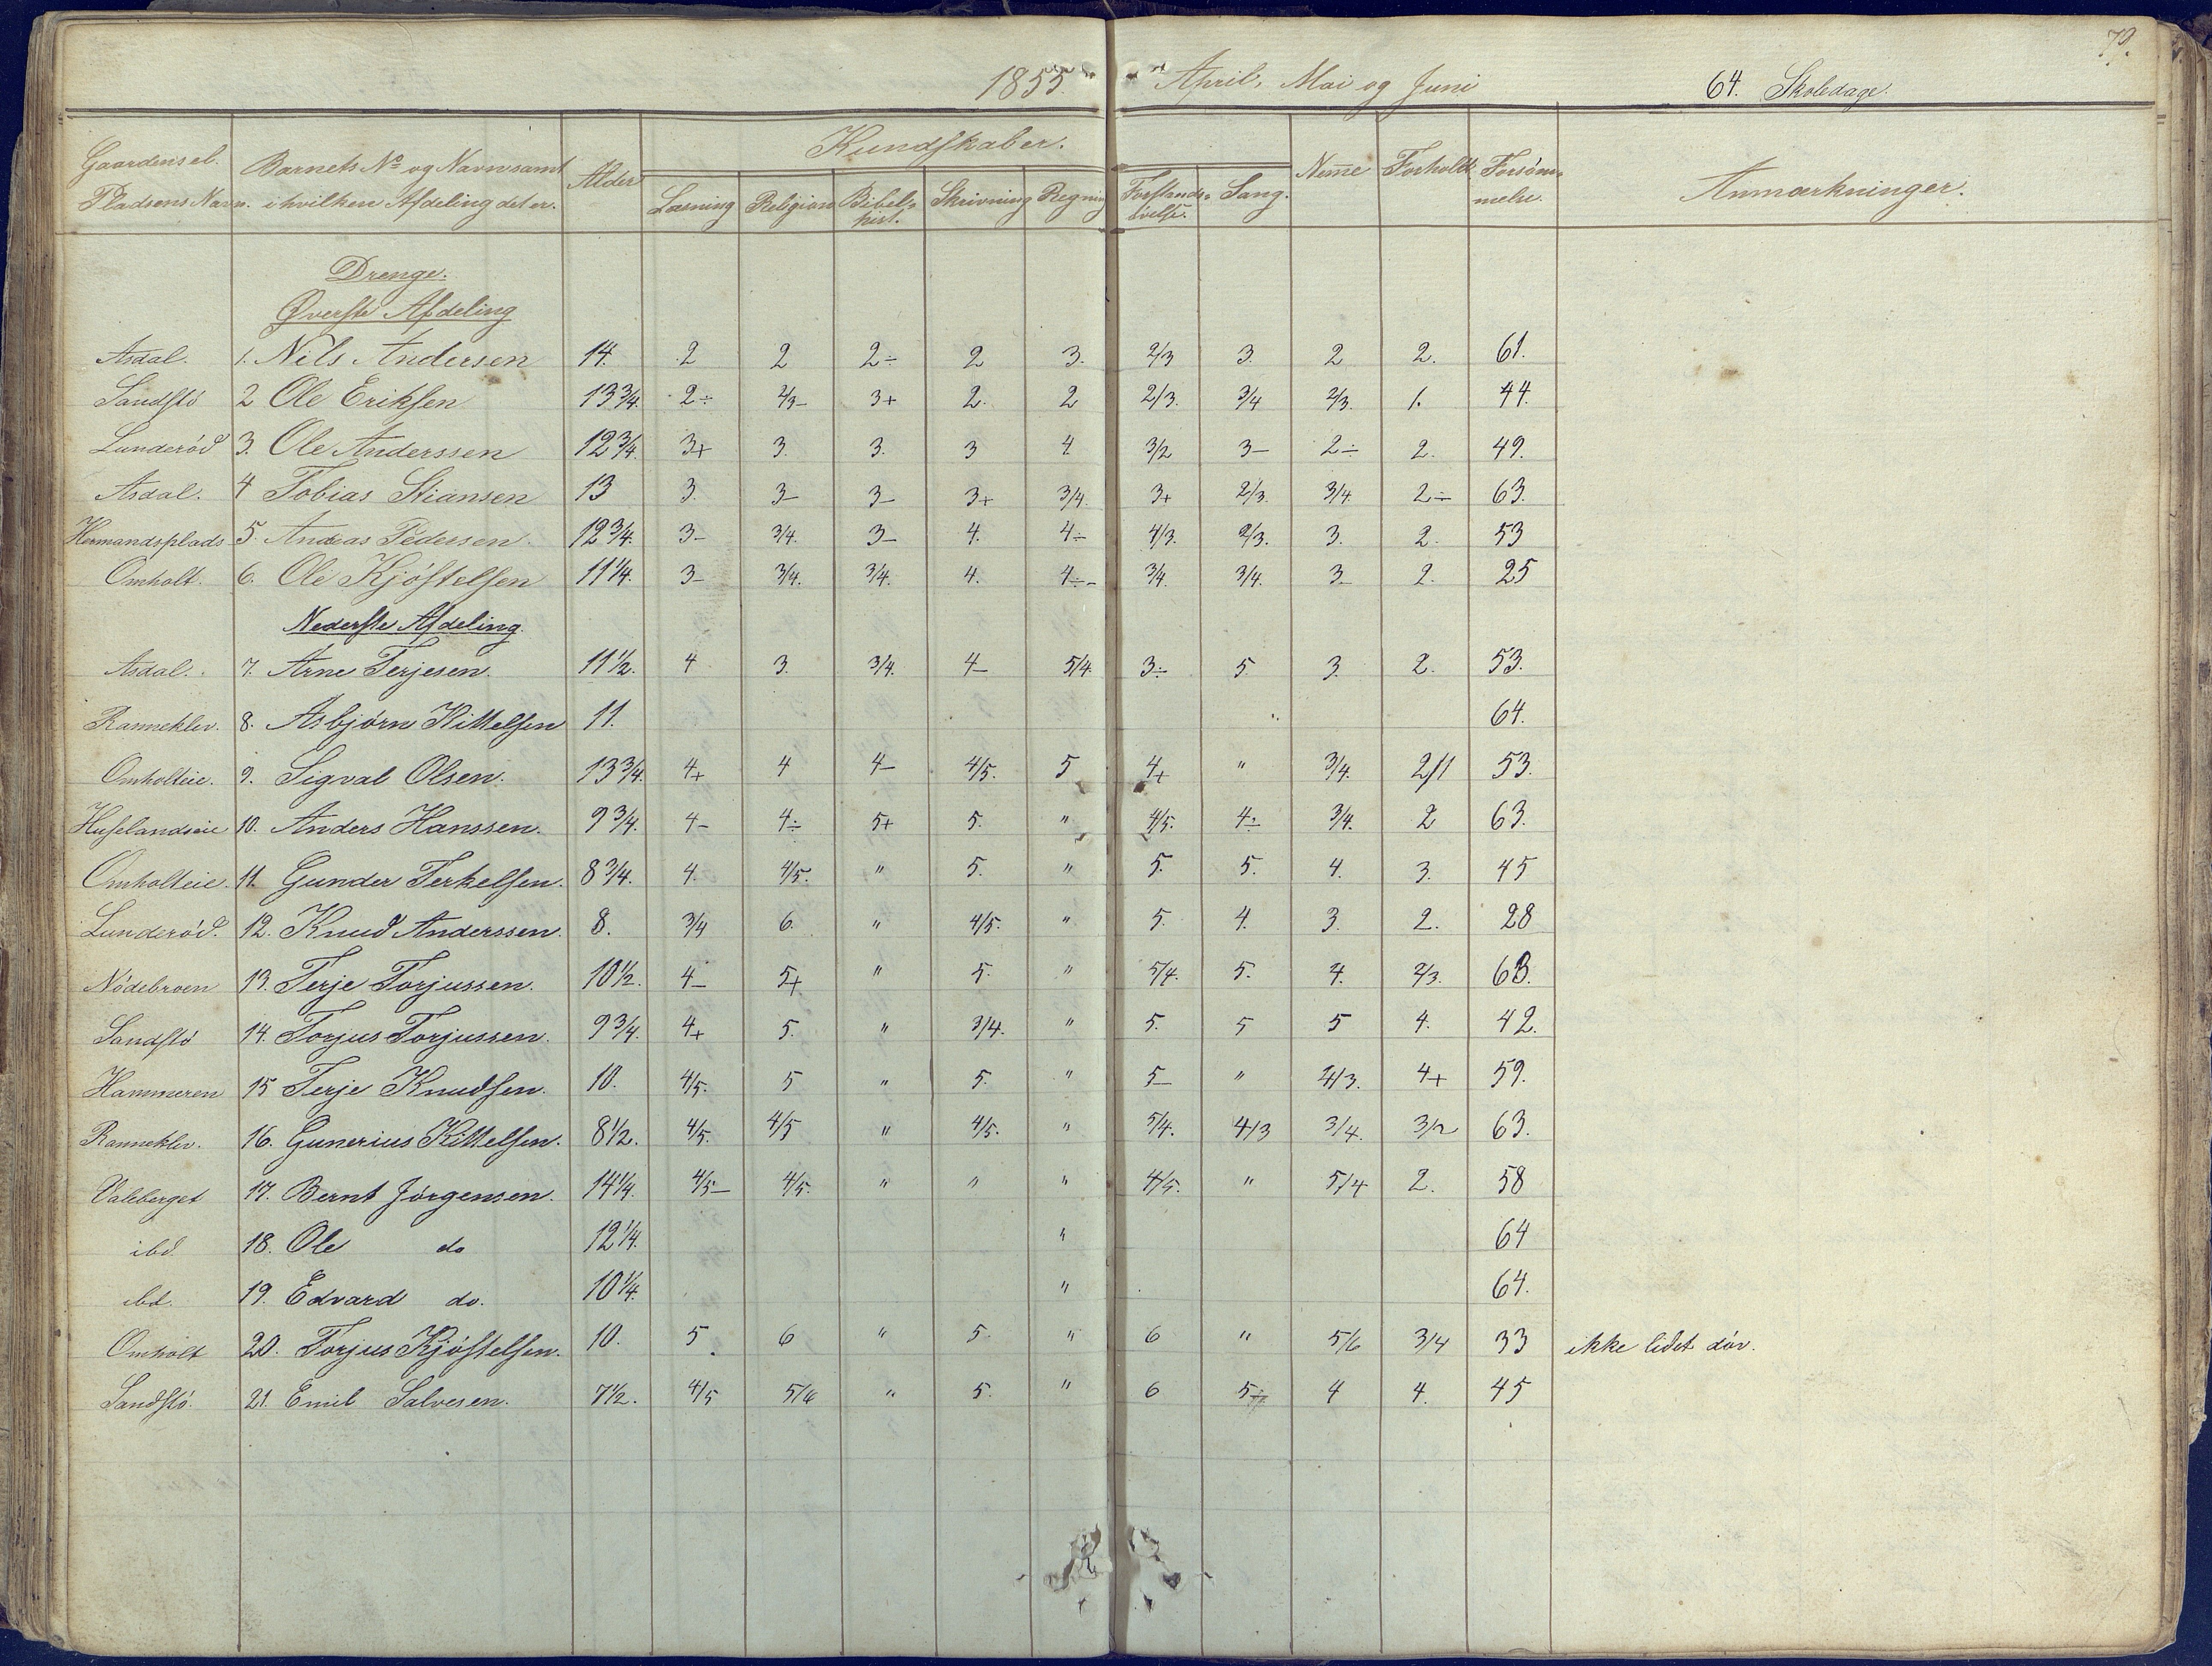 79.
1855. April, Mai og Juni 64. Skoledage.
Kundskaber.
Gaardens el. Barnets No og Navn samt Alder Nemme Forhold Forsøm- Anmærkninger.
Pladsens Navn. i hvilken Afdeling det er. Læsning Religion Bibel- Skrivning Regning Forstands- Sang. melse.
hist. øvelse.
Drenge.
Øverste Afdeling
Asdal. 1. Nils Andersen 14. 2 2 2÷ 2 3. 2/3 3. 2 2. 61.
Sandstø 2 Ole Eriksen 13 3/4. 2÷ 2/3- 3+ 2. 2 2/3. 3/4 2/3. 1. 44.
Lunderød 3. Ole Anderssen 12 3/4. 3+ 3. 3. 3 4 3/2 3- 2÷ 2. 49.
Asdal. 4 Tobias Stiansen 13 3. 3- 3- 3+ 3/4. 3+ 2/3. 3/4 2÷ 63.
Hermandsplads 5. Andeas Pedersen. 12 3/4. 3- 3/4. 3- 4. 4÷ 4/3. 2/3. 3. 2. 53
Omholt. 6. Ole Kjøstelsen 11 1/4. 3- 3/4. 3/4. 4. 4÷- 3/4. 3/4. 3- 2. 25
Nederste Afdeling.
Asdal. 7. Arne Terjesen. 11 1/2. 4 3. 3/4. 4- 5/4 3÷ 5. 3. 2. 53.
Ranneklev. 8. Asbjørn Kittelsen 11. 64.
Omholteie. 9. Sigval Olsen. 13 3/4. 4+ 4 4- 4/5. 5 4+ " 3/4. 2/1 53.
Huselandseie 10. Anders Hanssen. 9 3/4. 4- 4÷ 5+ 5. " 4/5. 4÷ 3/4. 2 63.
Omholteie. 11. Gunder Terkelsen. 8 3/4. 4. 4/5. " 5. " 5. 5. 4. 3. 45
Lunderød. 12. Knud Anderssen. 8. 3/4 6. " 4/5. " 5. 4. 3. 2. 28
Nødebroen 13. Terje Torjussen. 10 1/2. 4- 5+ " 5. " 5/4. 5. 4. 2/3. 63.
Sandstø 14. Torjus Torjussen. 9 3/4. 4+ 5. " 3/4. " 5. 5 5 4. 42.
Hammeren 15 Terje Knudsen. 10. 4/5. 5 " 5. " 5- " 4/3. 4+ 59.
Ranneklev. 16. Gunerius Kittelsen. 8 1/2. 4/5. 4/5 " 4/5. " 5/4. 4/3 3/4. 3/2 63.
Valeberget 17. Bernt Jørgensen. 14 1/4. 4/5- 4/5. " " " 4/5. " 5/4 2. 58
ibd. 18. Ole do 12 1/4. " 64
ibd. 19. Edvard do. 10 1/4. " 64.
Omholt 20. Torjus Kjøstelsen. 10. 5 6 " 5. " 6 " 5/6 3/4 33 ikke lidet døv.
Sandstø. 21. Emil Salvesen. 7 1/2. 4/5 5/6 " 5. " 6 5÷ 4 4. 45